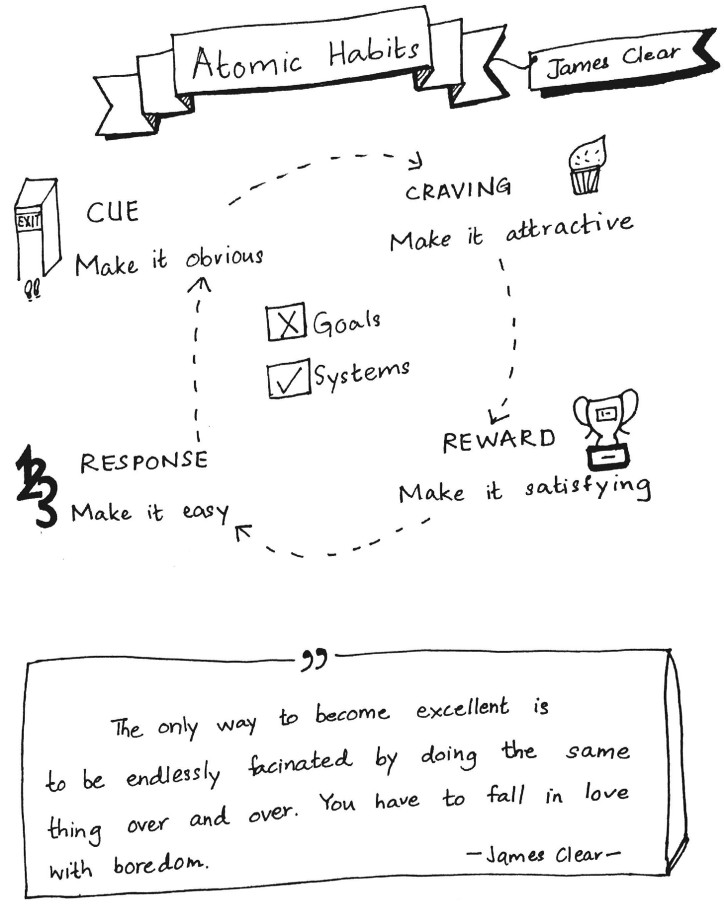 Atomic Habits
James Clear
EXIT
CUE
Make it obvious
CRAVING
Make it attractive
X Goals
✓ Systems
1
2
3
RESPONSE
Make it easy
1
REWARD
Make it satisfying
”
The only way to become excellent is
to be endlessly facinated by doing the same
thing over and over. You have to fall in love
with boredom.
—James Clear—